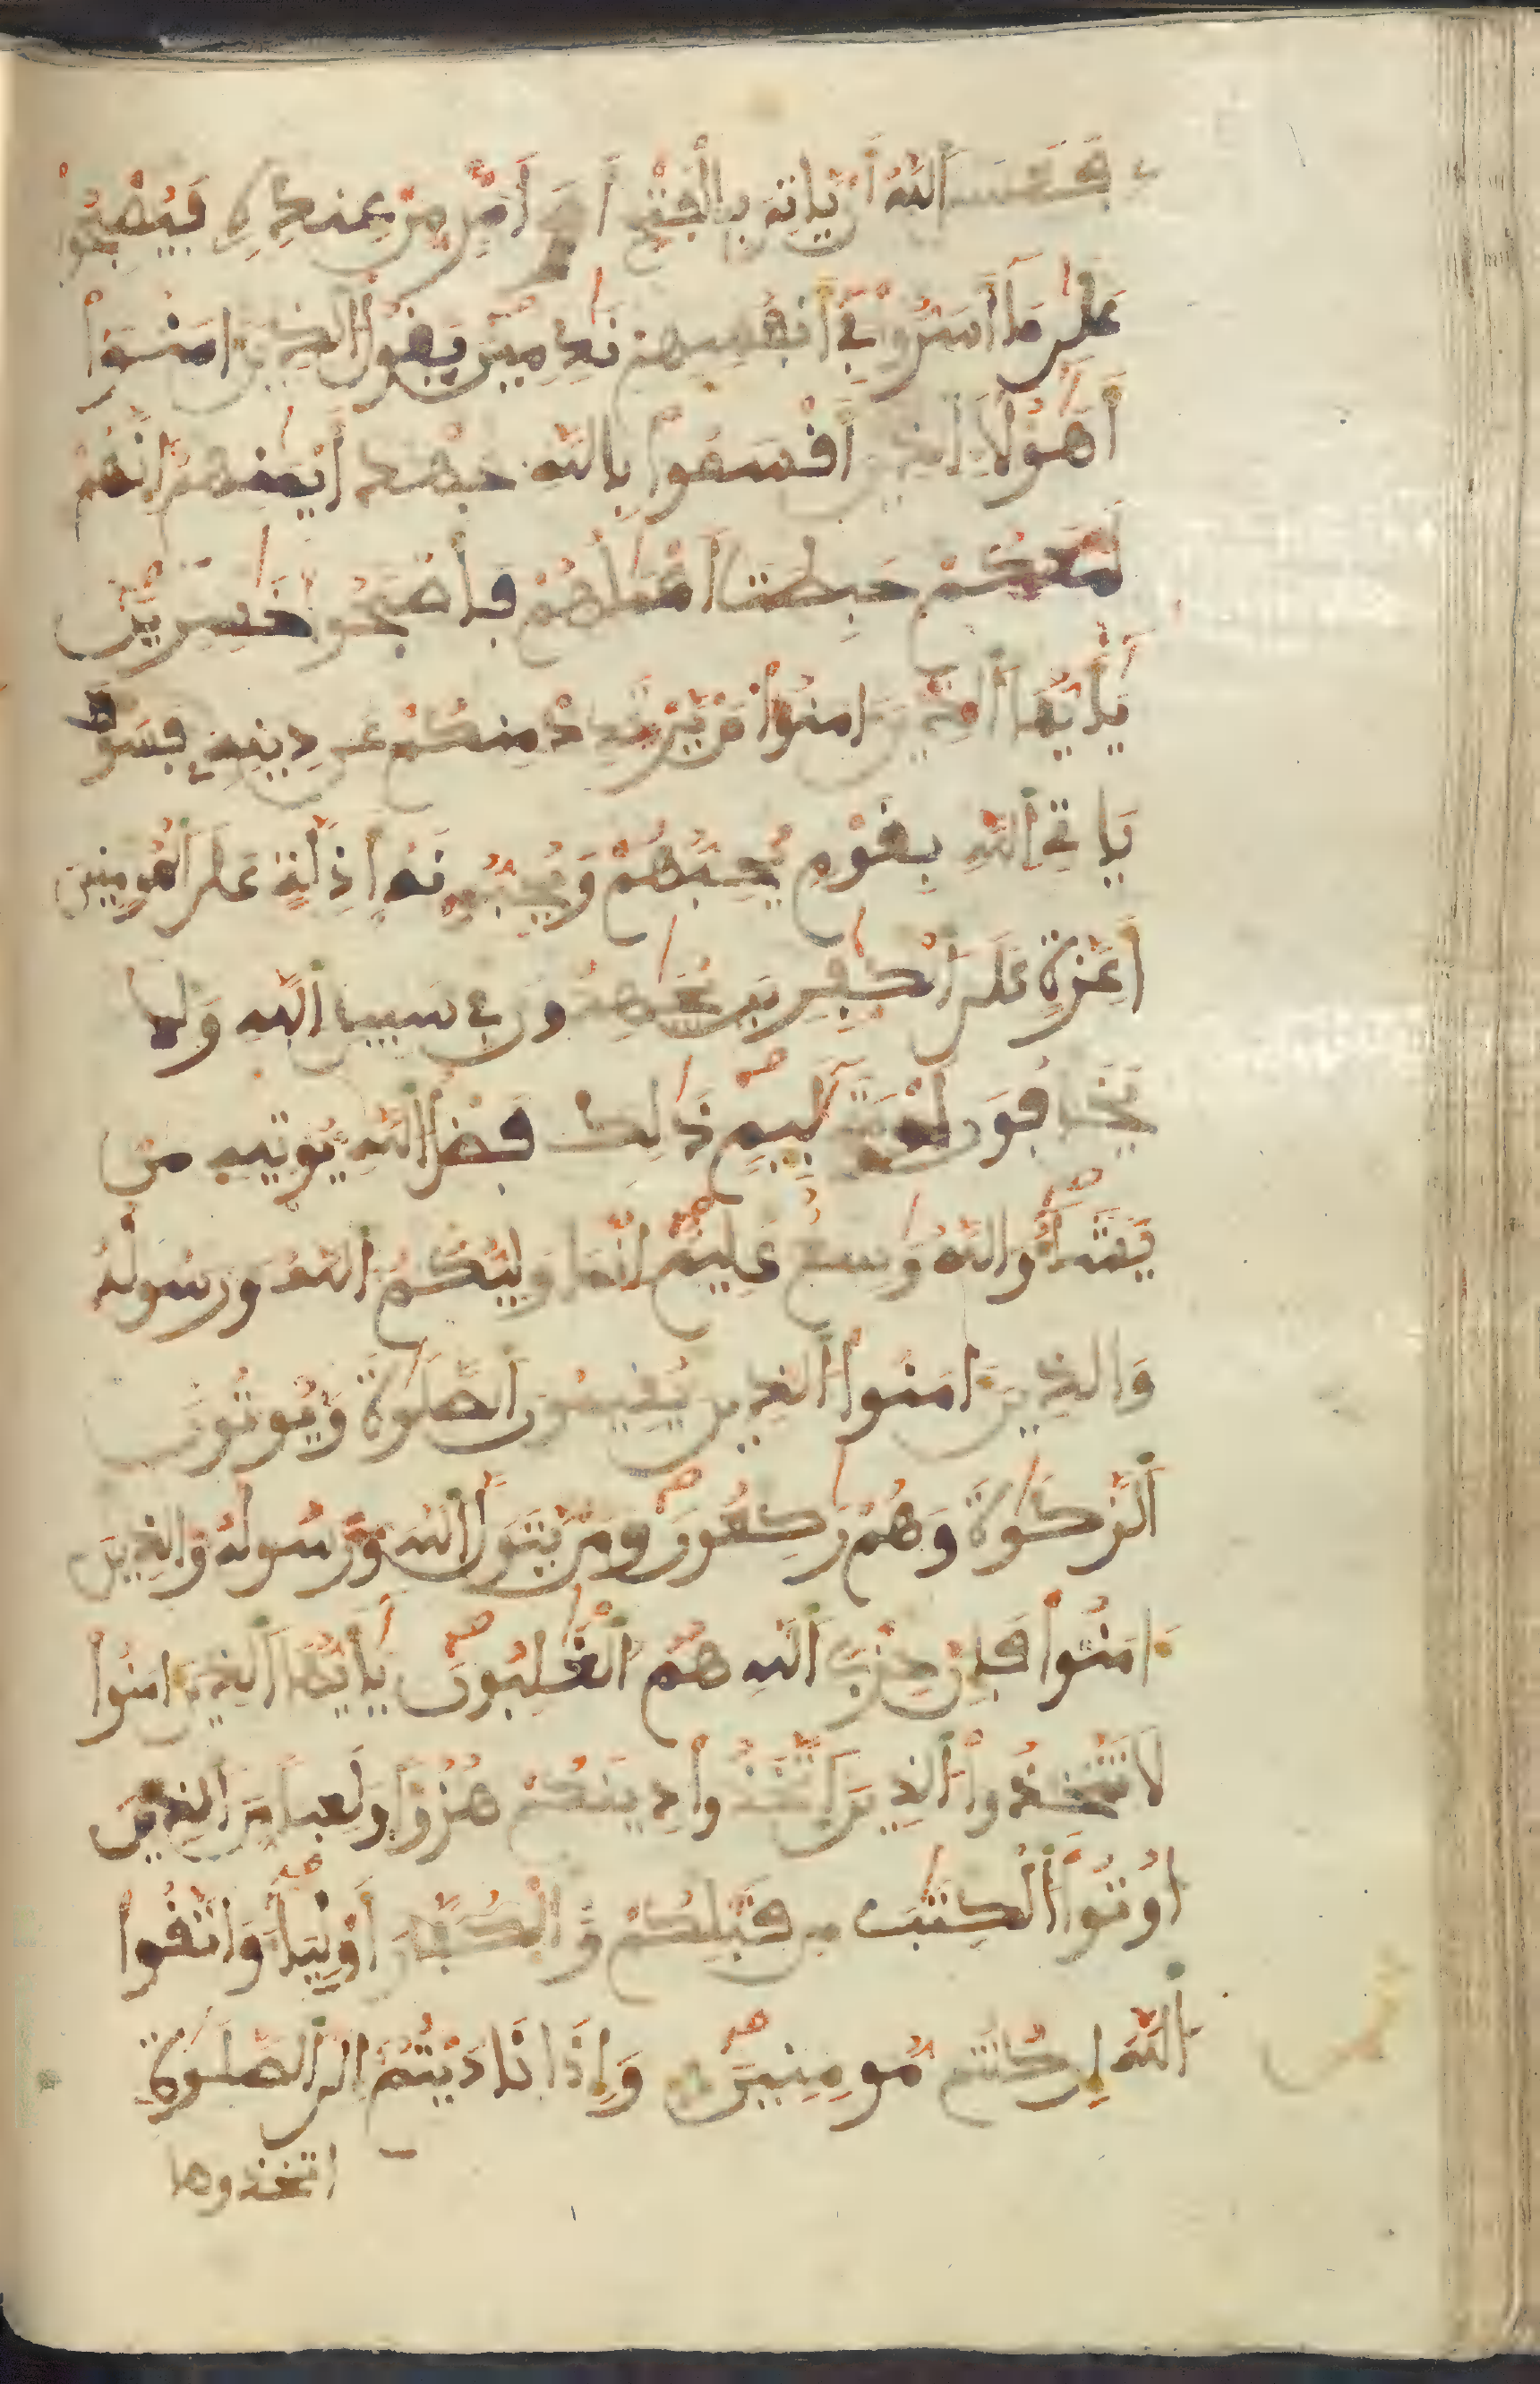 فَعَسَى اَللَّهُ أَنْ يَّاتِيَ بِالْفَتْحِ أَوَ اَمْرٍ مِّنْ عِندِهِ فَيُصْبِحُواْ
عَلَىٰ مَا أَسَرُّواْ فِي أَنفُسِهِمْ نَٰدِمِينَ يَقُولُ اُلذِينَ ءَامَنُواْ
أَهَٰؤُلَاءِ اِلذِينَ أَقْسَمُواْ بِاللَّهِ جَهْدَ أَيْمَٰنِهِمْ إِنَّهُمْ
لَمَعَكُمْ حَبِطَتَ اَعْمَٰلُهُمْ فَأَصْبَحُواْ خَٰسِرِينَ
يَٰأَيُّهَا اَلذِينَ ءَامَنُواْ مَنْ يَّرْتَدِدْ مِنكُمْ عَن دِينِهِ فَسَوْفَ
يَاتِي اِللَّهُ بِقَوْمٍ يُحِبُّهُمْ وَيُحِبُّونَهُ أَذِلَّةٍ عَلَى اَلْمُومِنِينَ
أَعِزَّةٍ عَلَى اَلْكَٰفِرِينَ يُجَٰهِدُونَ فِي سَبِيلِ اِللَّهِ وَلَا
يَخَافُونَ لَوْمَةَ لَآئِمٍ ذَٰلِكَ فَضْلُ اُللَّهِ يُوتِيهِ مَنْ
يَّشَآءُ وَاللَّهُ وَٰسِعٌ عَلِيمٌ إِنَّمَا وَلِيُّكُمُ اُللَّهُ وَرَسُولُهُ
وَالذِينَ ءَامَنُواْ اُلذِينَ يُقِيمُونَ اَلصَّلَوٰةَ وَيُوتُونَ
اَلزَّكَوٰةَ وَهُمْ رَٰكِعُونَ وَمَنْ يَّتَوَلَّ اَللَّهَ وَرَسُولَهُ وَالذِينَ
ءَامَنُواْ فَإِنَّ حِزْبَ اَللَّهِ هُمُ اُلْغَٰلِبُونَ يَٰأَيُّهَا اَلذِينَ ءَامَنُواْ
لَا تَتَّخِذُواْ اُلذِينَ اَتَّخَذُواْ دِينَكُمْ هُزُؤًا وَلَعِبًا مِّنَ اَلذِينَ
أُوتُواْ اُلْكِتَٰبَ مِن قَبْلِكُمْ وَالْكُفَّارَ أَوْلِيَآءَ وَاتَّقُواْ
اُللَّهَ إِن كُنتُم مُّومِنِينَ وَإِذَا نَادَيْتُمُ إِلَى اَلصَّلَوٰةِ
اتخذوها